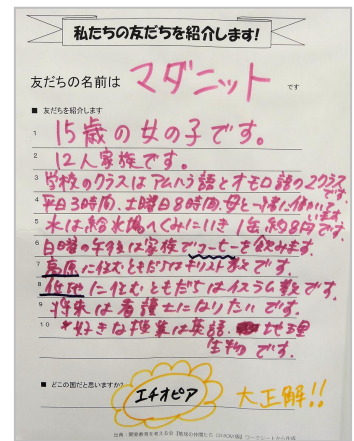 私たちの友だちを紹介します!
友だちの名前は マダニット です
■ 友だちを紹介します
1 15歳の女の子です。
2 12人家族です。
3 学校のクラスはアムハラ語とオモロ語の2クラスです。
4 平日3時間、土曜日8時間、母と一緒に働いています。
5 水は給水場へくみにいき1缶約8円です。
6 日曜の午後は家族でコーヒーを飲みます。
7 高原に住むともだちはキリスト教です。
8 低地に住むともだちはイスラム教です。
9 将来は看護士になりたいです。
10 *好きな授業は英語 地理
生物です。
■ どこの国だと思いますか?
エチオピア
大正解!!
出典:開発教育を考える会『地球の仲間たち CD-ROM版』ワークシートから作成